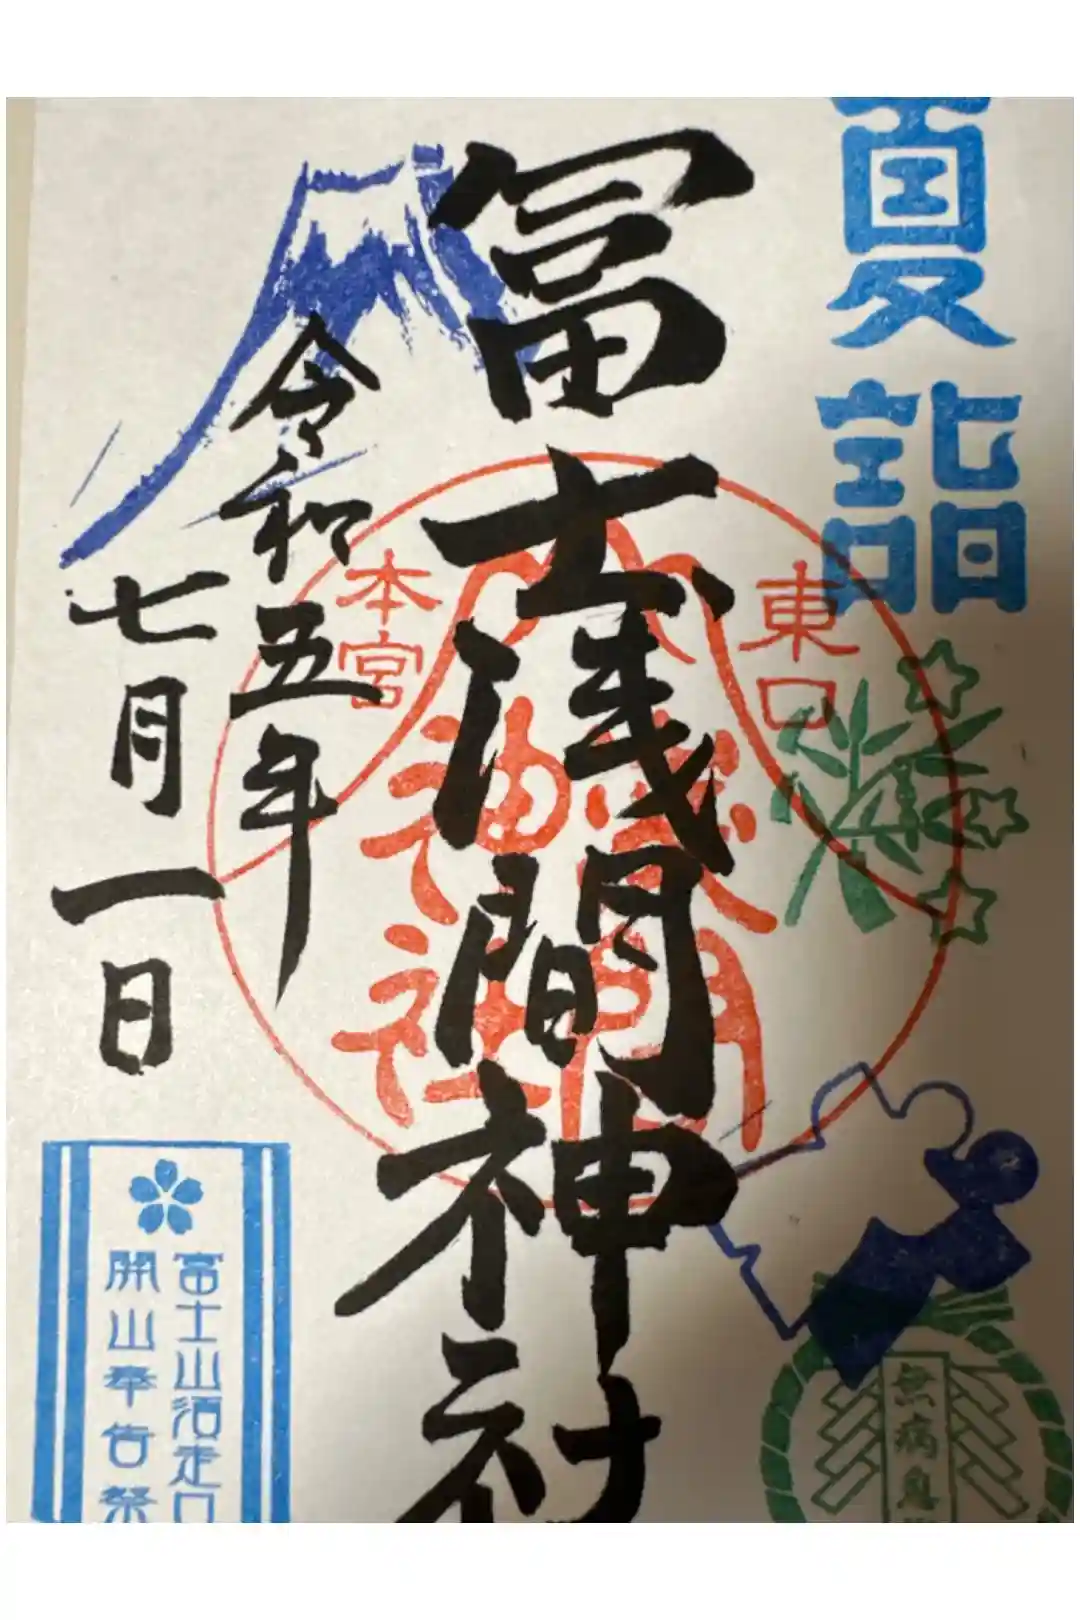 夏詣
冨士浅間神社
東口
本宮
浅間
神社
令和五年
七月一日
富士山須走口
開山奉告祭
無病息